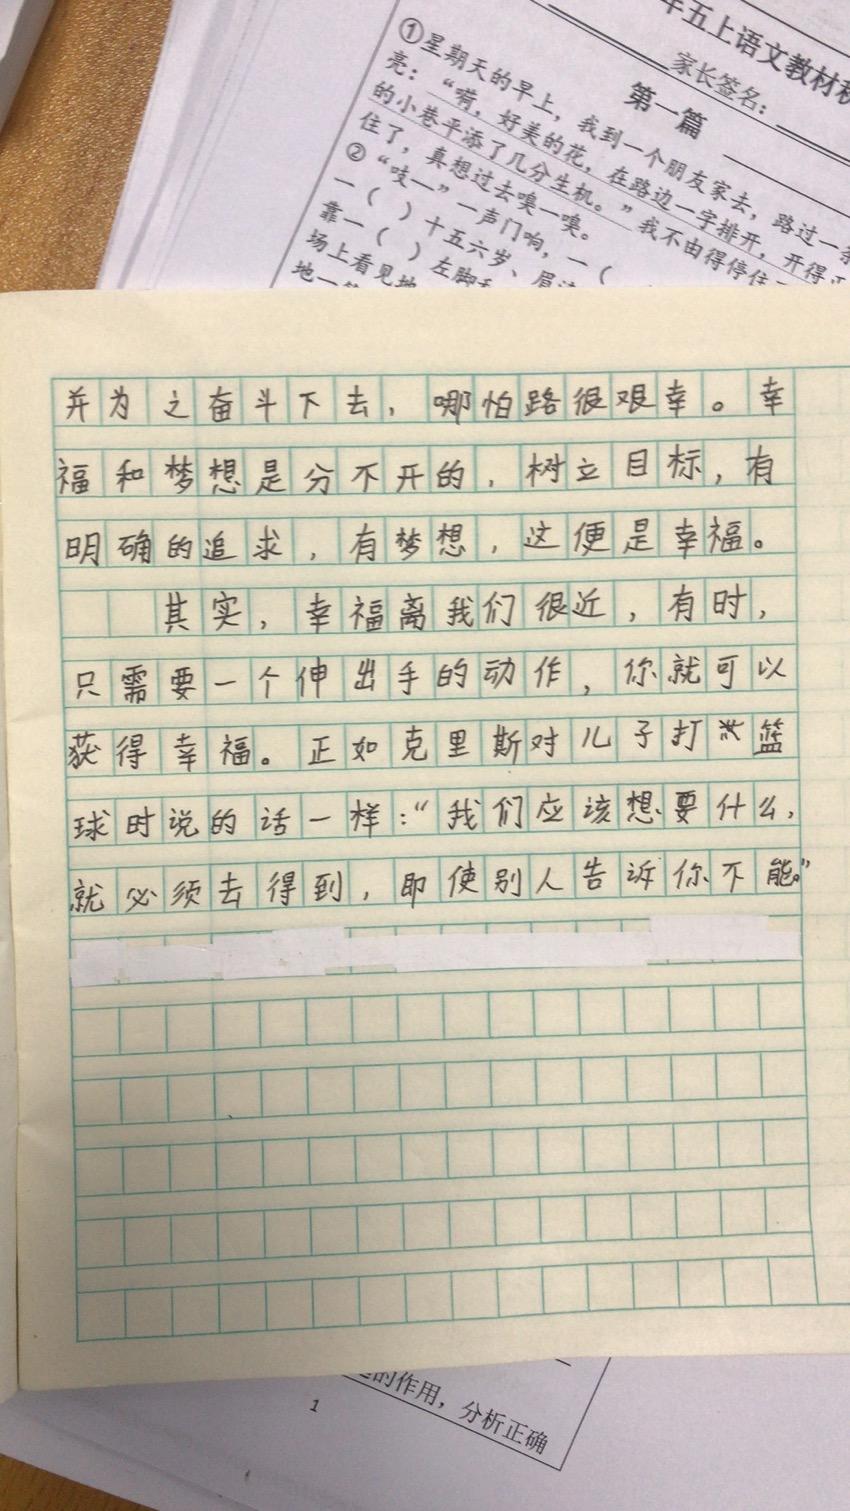 年五上语文教材
家长签名：
第一篇
①星期天的早上，我到一个朋友家去，路过一条
亮：“嗬，好美的花，在路边一字排开，开得正
的小巷平添了几分生机。”我不由得停住
住了，真想过去嗅一嗅。
②“吱—”一声门响，一（
一（ ）十五六岁、眉
靠一（ ）左脚
场上看见她
地一
并为之奋斗下去，哪怕路很艰幸。幸
福和梦想是分不开的，树立目标，有
明确的追求，有梦想，这便是幸福。
其实，幸福离我们很近，有时，
只需要一个伸出手的动作，你就可以
获得幸福。正如克里斯对儿子打篮
球时说的话一样：“我们应该想要什么，
就必须去得到，即使别人告诉你不能。”
的作用，分析正确
1